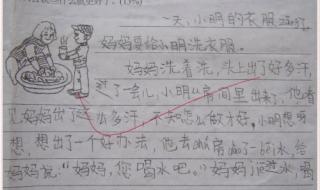 一天,小明的衣服
妈妈要给小明洗衣服。
妈妈洗着洗,头上出了好多汗,
过了一会儿,小明从房间里出来了。他看
见妈妈出了这么多汗,不知怎么做才好,小明想呀
想,想出了一个好办法,他去厨房 了一 水,给
妈妈说:“妈妈,您喝水吧。”妈妈 水,喝